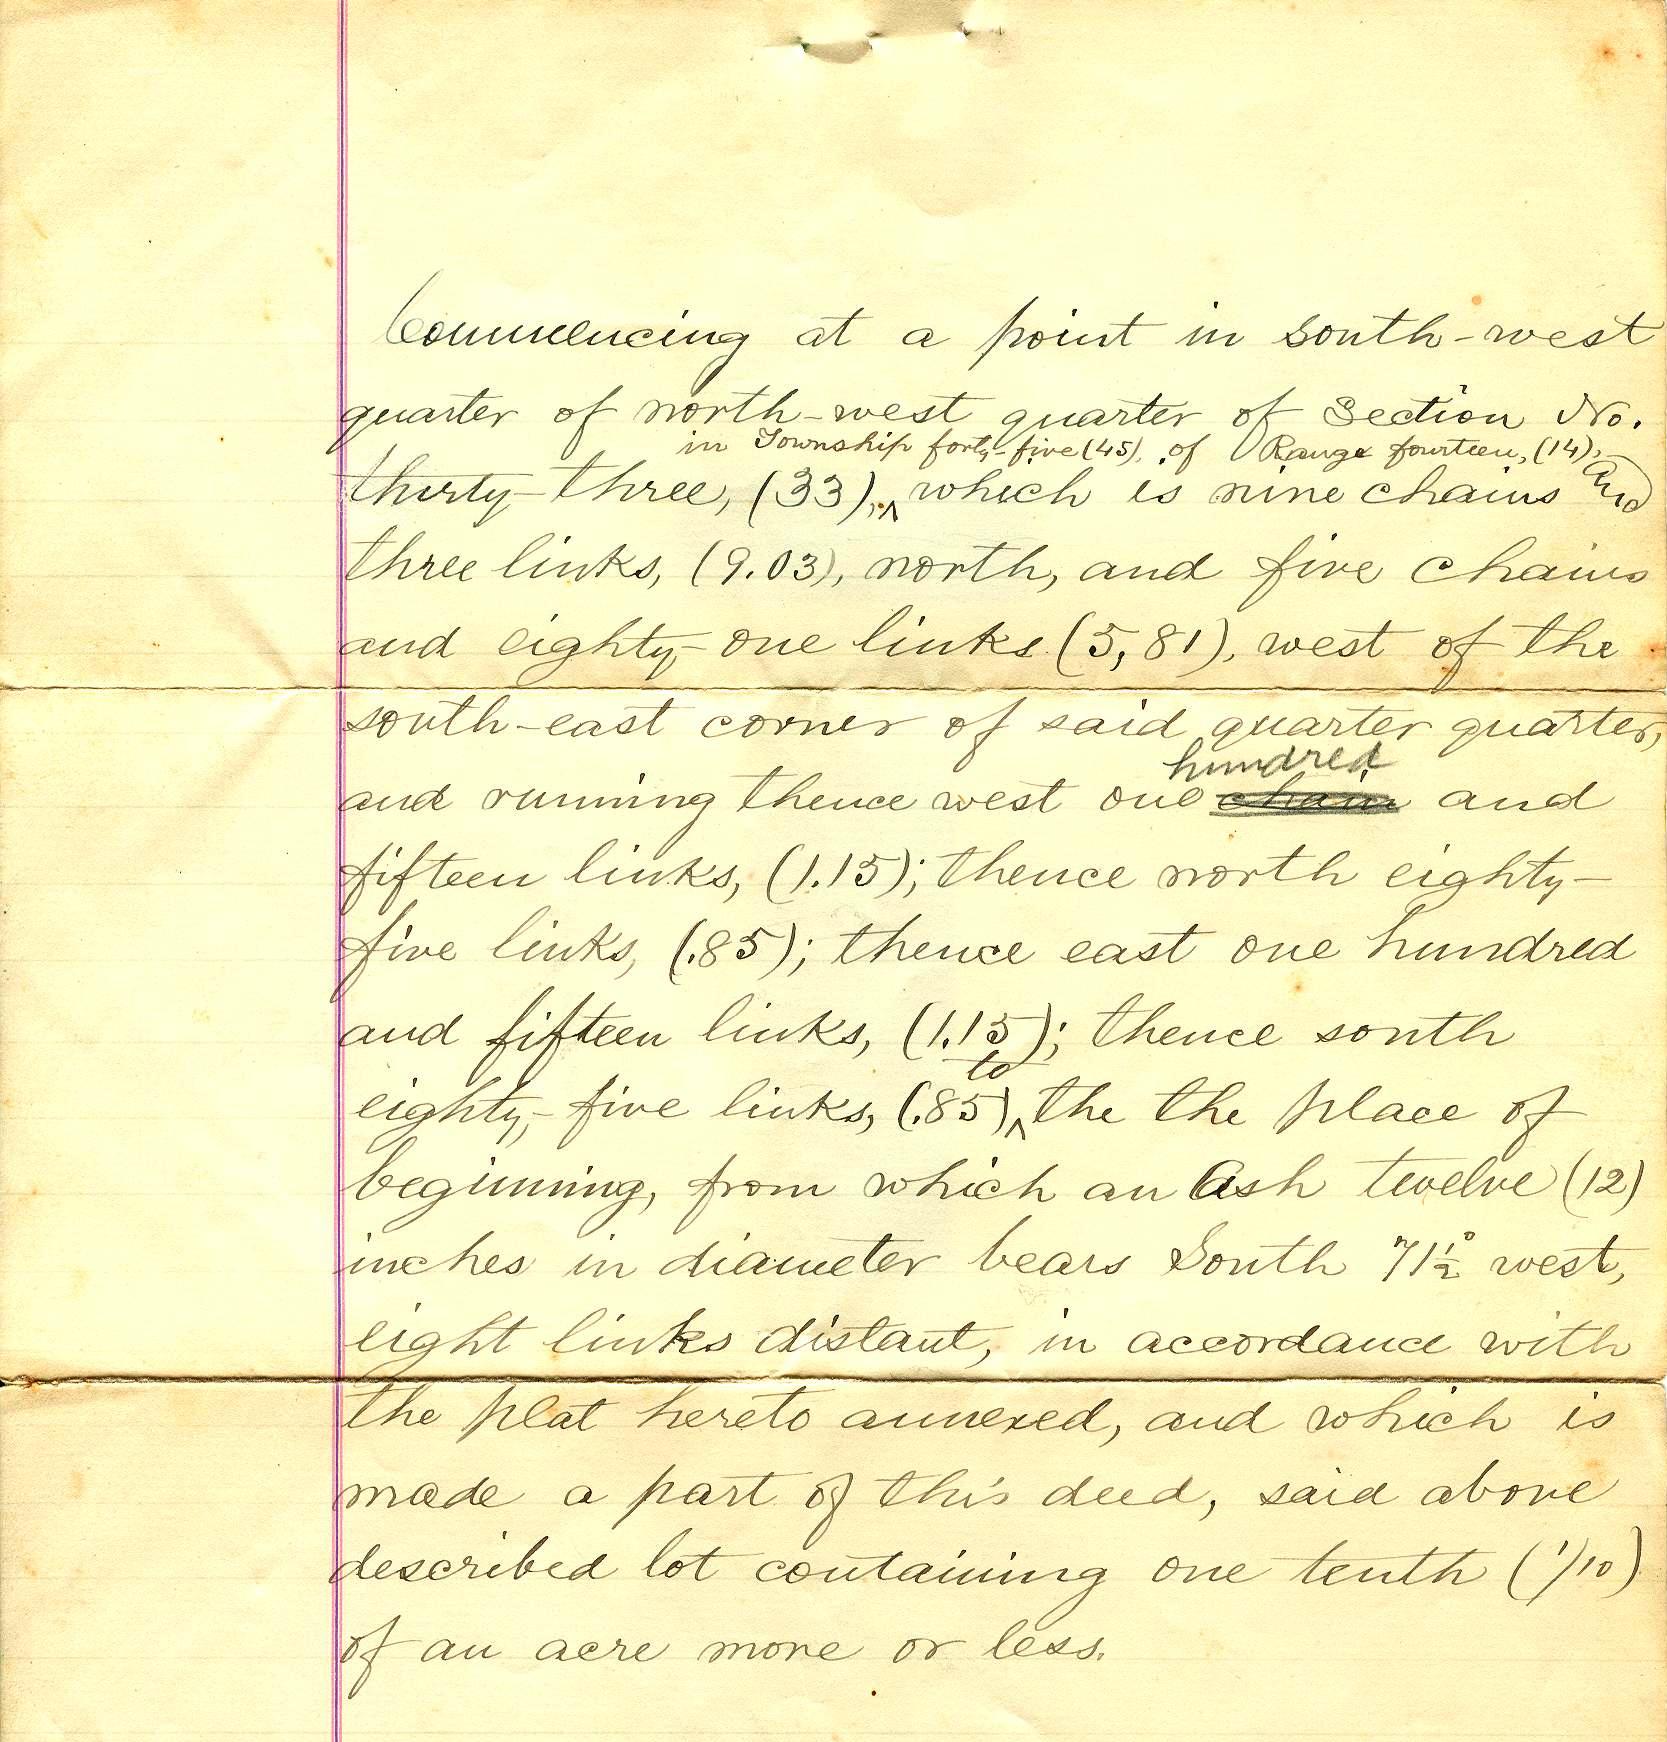 Commencing at a point in South-west
quarter of north-west quarter of Section No.
in Township forty-five (45), of Range fourteen, (14),
thirty-three, (33), which is nine chains and
three links, (9.03), north, and five chains
and eighty-one links (5,81), west of the
south-east corner of said quarter quarter,
hundred
and running thence west one chain and
fifteen links, (1.15); thence north eighty-
five links, (.85); thence east one hundred
and fifteen links, (1.15); thence south
to
eighty-five links, (.85), the the place of
beginning, from which an Ash twelve (12)
inches in diameter bears South 71½° west,
eight links distant, in accordance with
the plat hereto annexed, and which is
made a part of this deed, said above
described lot containing one tenth (1/10)
of an acre more or less.